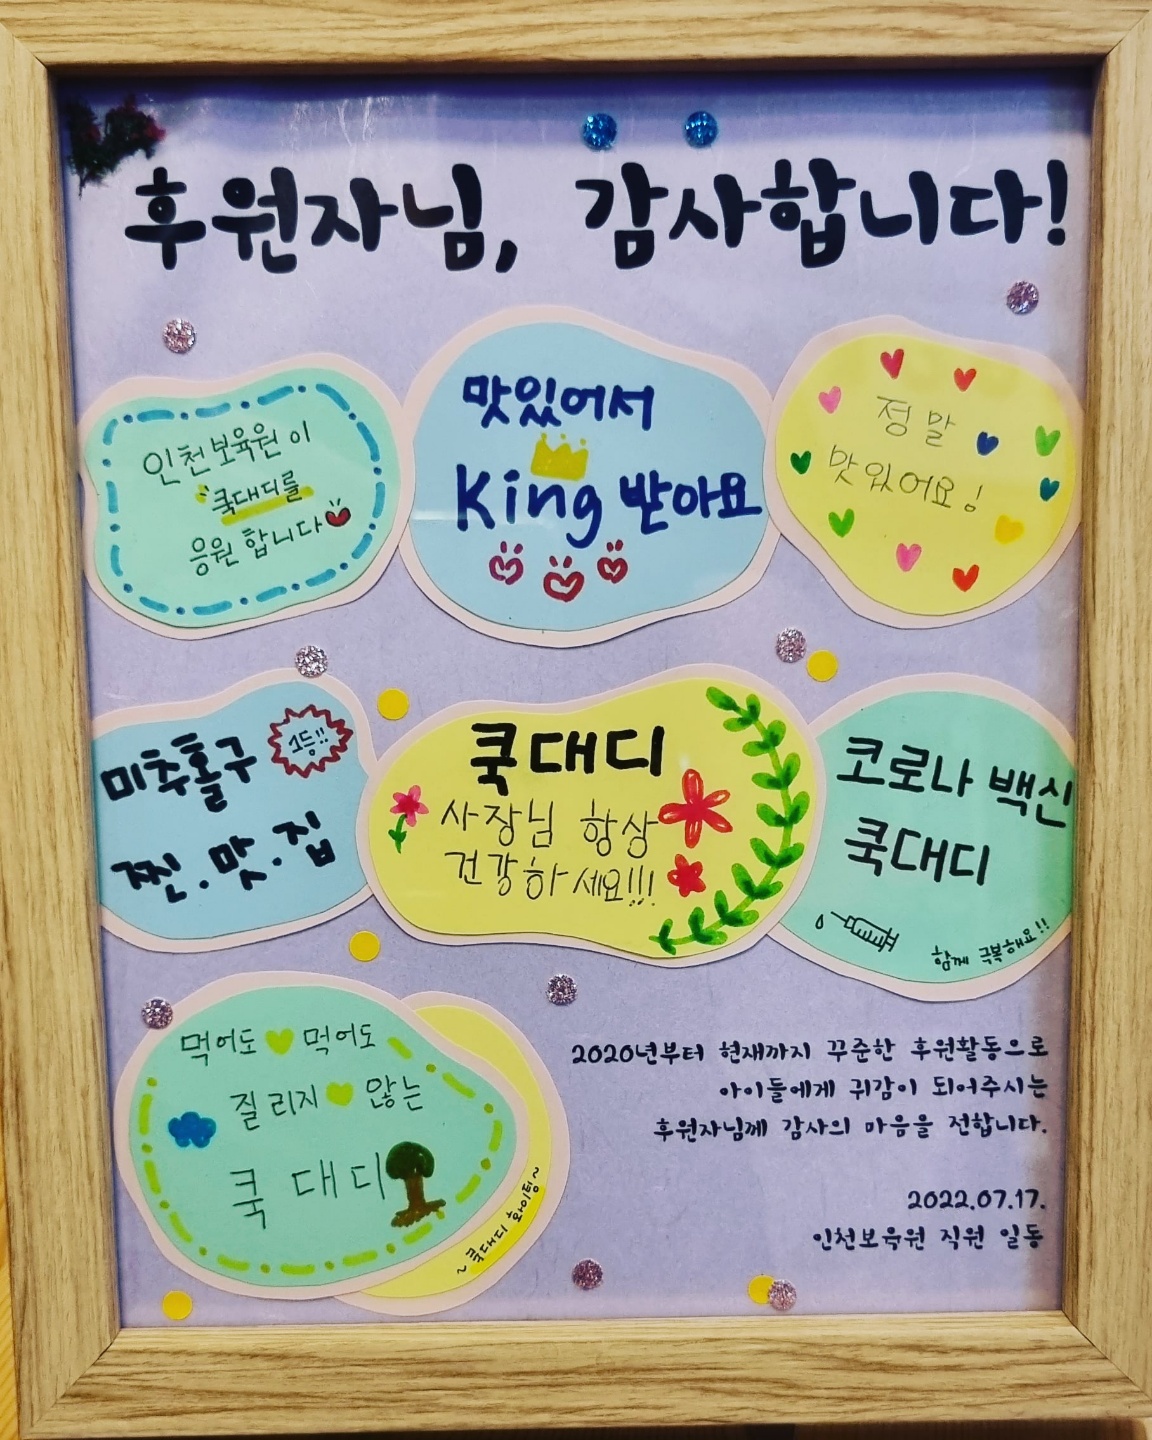 후원자님, 감사합니다!
인천보육원이
쿡대디를
응원합니다
맛있어서
King 받아요
정말
맛있어요!
미추홀구
1등!!
찐.맛.집
쿡대디
사장님 항상
건강하세요!!!
코로나 백신
쿡대디
함께 극복해요!!
먹어도 먹어도
질리지 않는
쿡대디
~쿡대디 화이팅~
2020년부터 현재까지 꾸준한 후원활동으로
아이들에게 귀감이 되어주시는
후원자님께 감사의 마음을 전합니다.
2022.07.17.
인천보육원 직원 일동